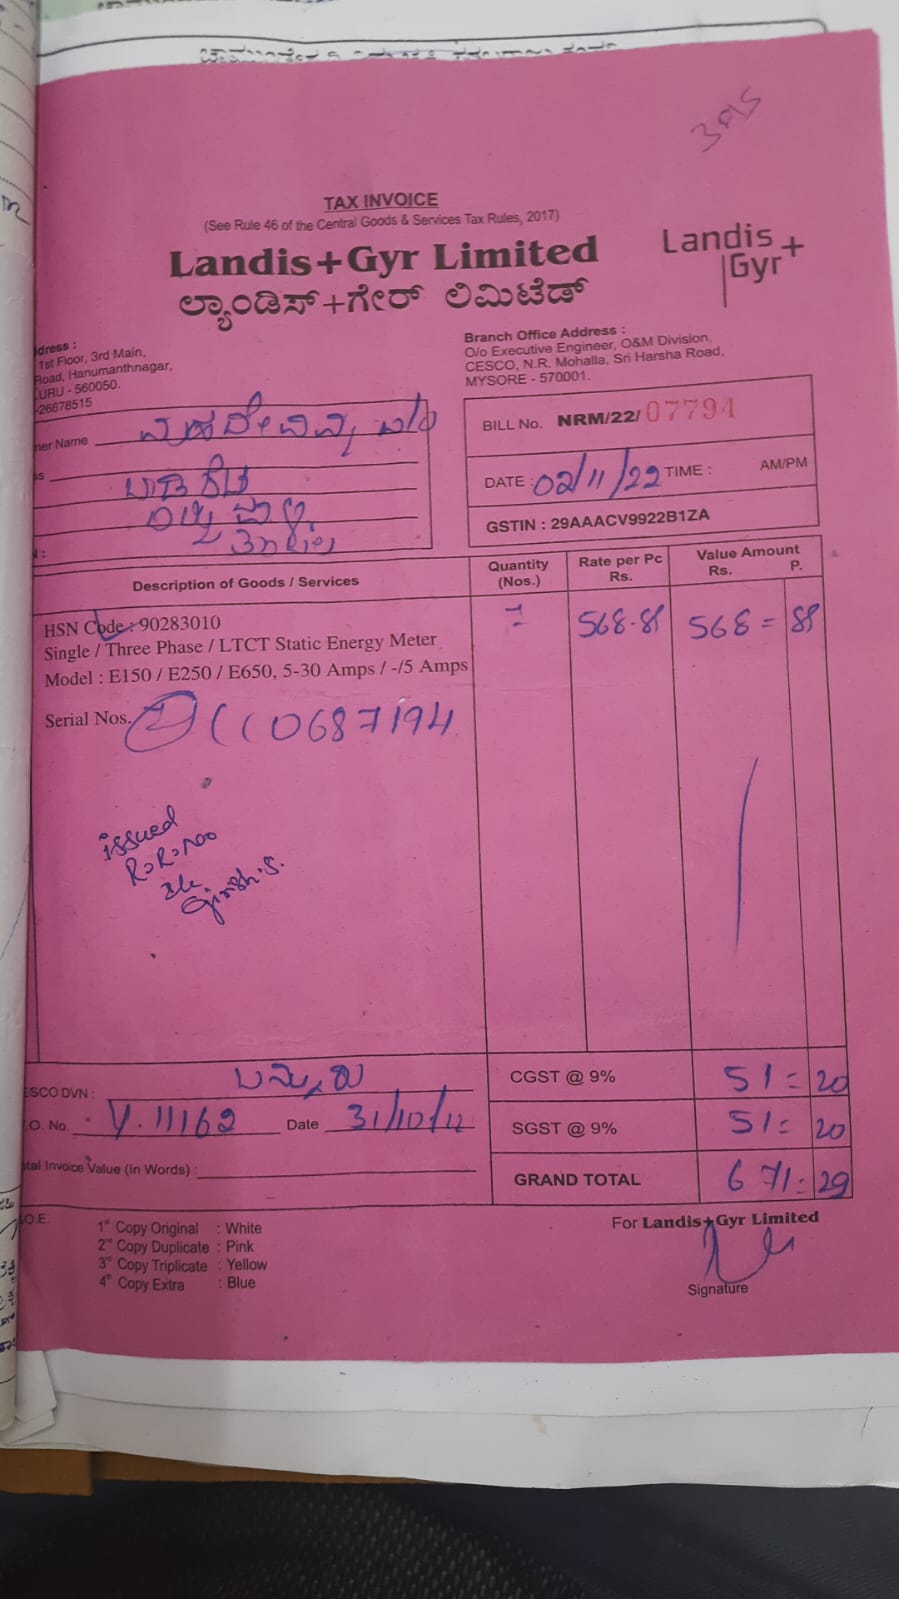 3915
TAX INVOICE
(See Rule 46 of the Central Goods & Services Tax Rules, 2017)
Landis+Gyr Limited
ಲ್ಯಾಂಡಿಸ್+ಗೇರ್ ಲಿಮಿಟೆಡ್
Landis
Gyr+
dress :
1st Floor, 3rd Main,
Road, Hanumanthnagar,
URU - 560050.
-26678515
Branch Office Address :
O/o Executive Engineer, O&M Division,
CESCO, N.R. Mohalla, Sri Harsha Road,
MYSORE - 570001.
ner Name
BILL No. NRM/22/ 07794
DATE : 02/11/22 TIME : AM/PM
GSTIN : 29AAACV9922B1ZA
Description of Goods / Services
Quantity (Nos.)
Rate per Pc Rs.
Value Amount Rs. P.
HSN Code : 90283010
Single / Three Phase / LTCT Static Energy Meter
Model : E150 / E250 / E650, 5-30 Amps / -/5 Amps
568-88 568=88
Serial Nos. 0687194
issued
Girish.S.
ESCO DVN : ಬನ್ನೂರು
.O. No. Y.11162 Date 31/10/22
tal Invoice Value (In Words) :
CGST @ 9% 51=20
SGST @ 9% 51=20
GRAND TOTAL 671=29
.O.E
1st Copy Original : White
2nd Copy Duplicate : Pink
3rd Copy Triplicate : Yellow
4th Copy Extra : Blue
For Landis+Gyr Limited
Signature